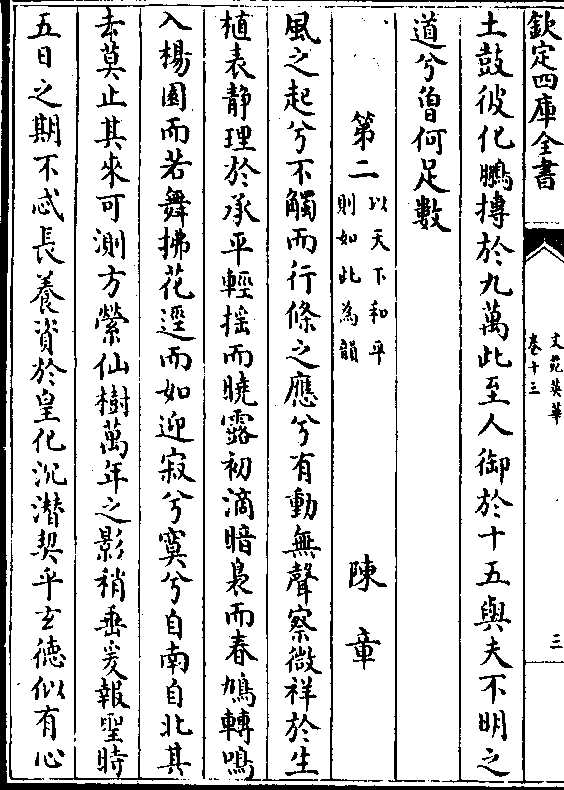 欽定四庫全書
文苑英華
卷十三
三
土鼓彼化鵬摶於九萬此至人御於十五與夫不明之
道兮曽何足數
第二
以天下和平
則如此為韻
陳章
風之起兮不觸而行條之應兮有動無聲察微祥於生
植表静理於承平輕揺而曉露初滴暗裊而春鳩轉鳴
入楊園而若舞拂花逕而如迎寂兮寞兮自南自北其
去莫止其來可測方縈仙樹萬年之影稍垂爰報聖時
五日之期不忒長養資於皇化沉潜契乎玄徳似有心